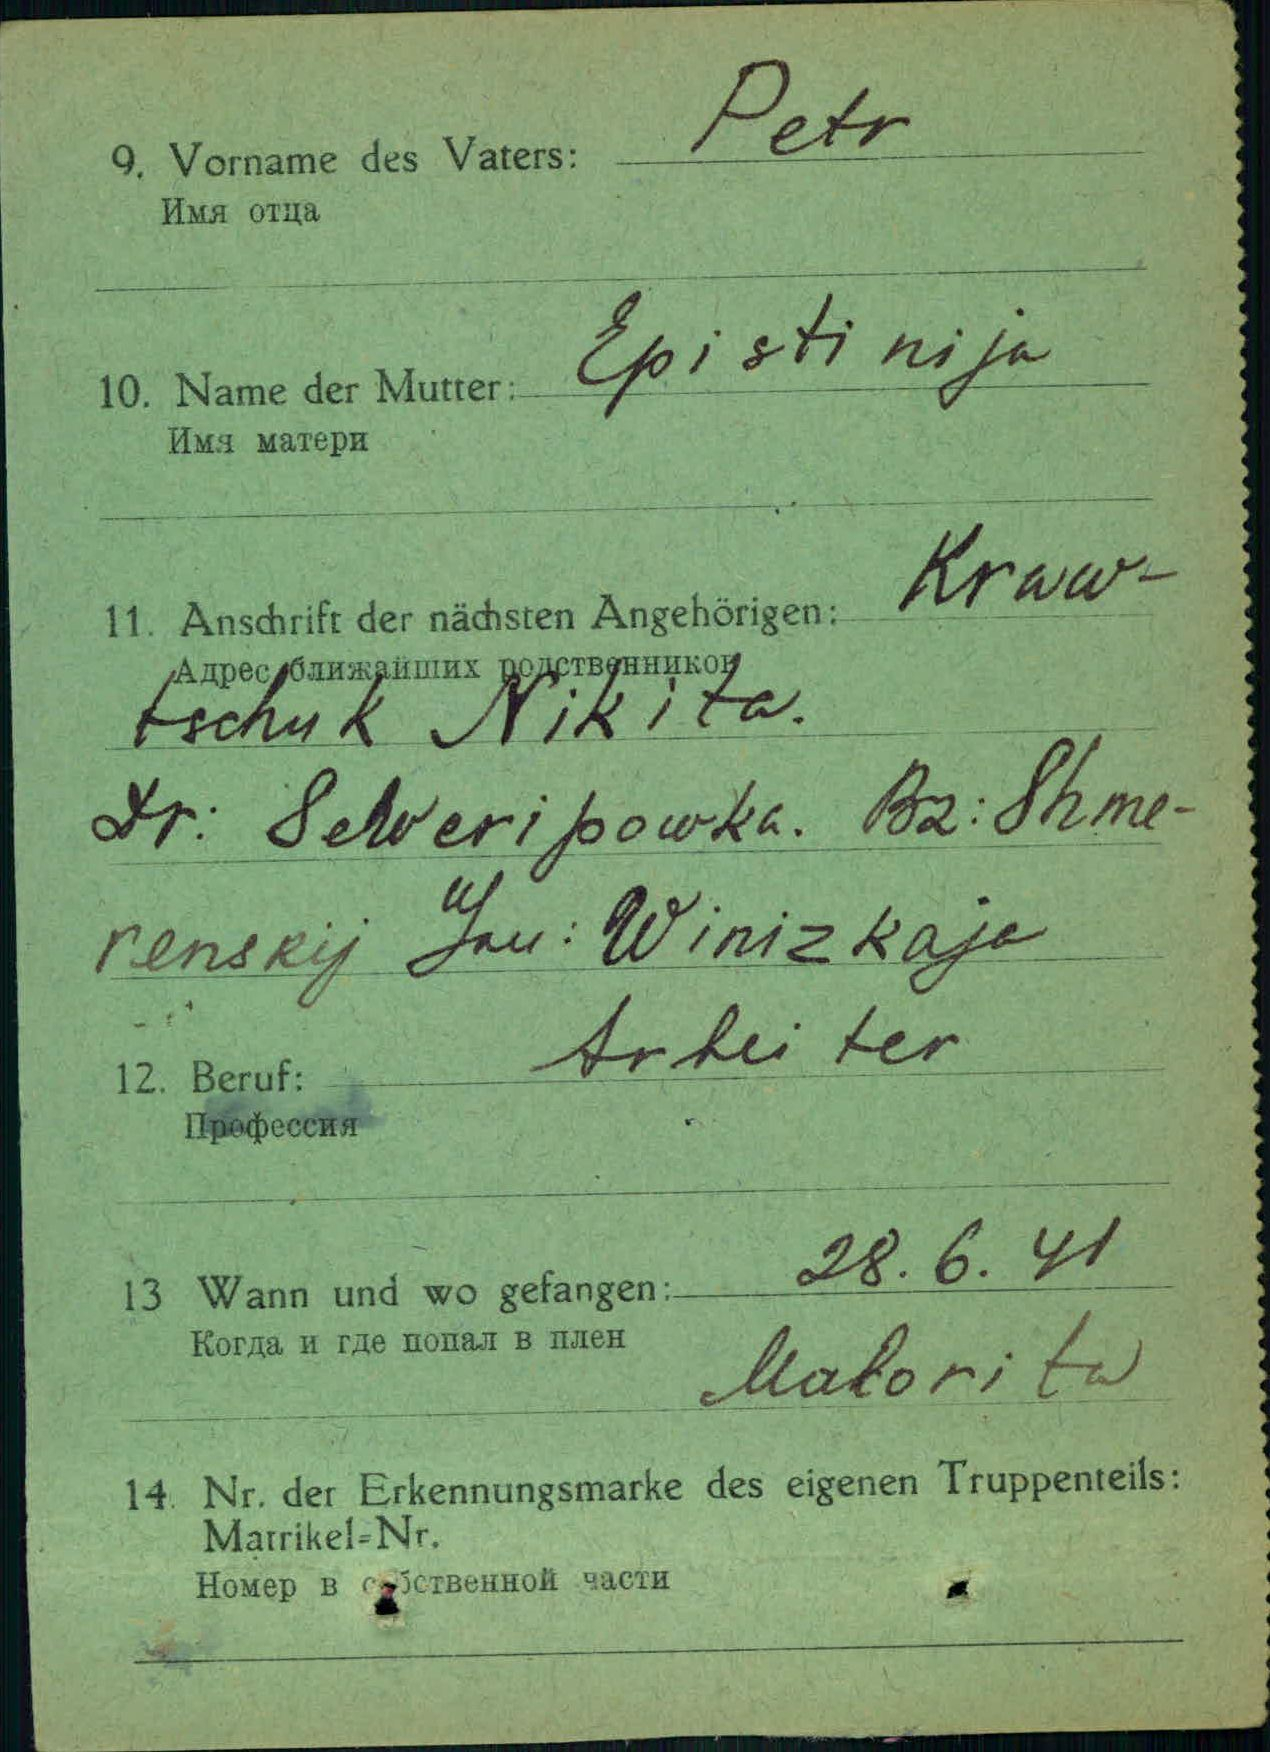 Petr
9. Vorname des Vaters:
Имя отца
Epistinija
10. Name der Mutter:
Имя матери
Kraw-
11. Anschrift der nächsten Angehörigen:
Адрес ближайших родственников
tschuk Nikita.
Dr: Selveripowka. Bz: Shme-
renskij : Winizkaja
Arbeiter
12. Beruf:
Профессия
28. 6. 41
13 Wann und wo gefangen:
Когда и где попал в плен
Malorita
14. Nr. der Erkennungsmarke des eigenen Truppenteils:
Matrikel=Nr.
Номер в собственной части